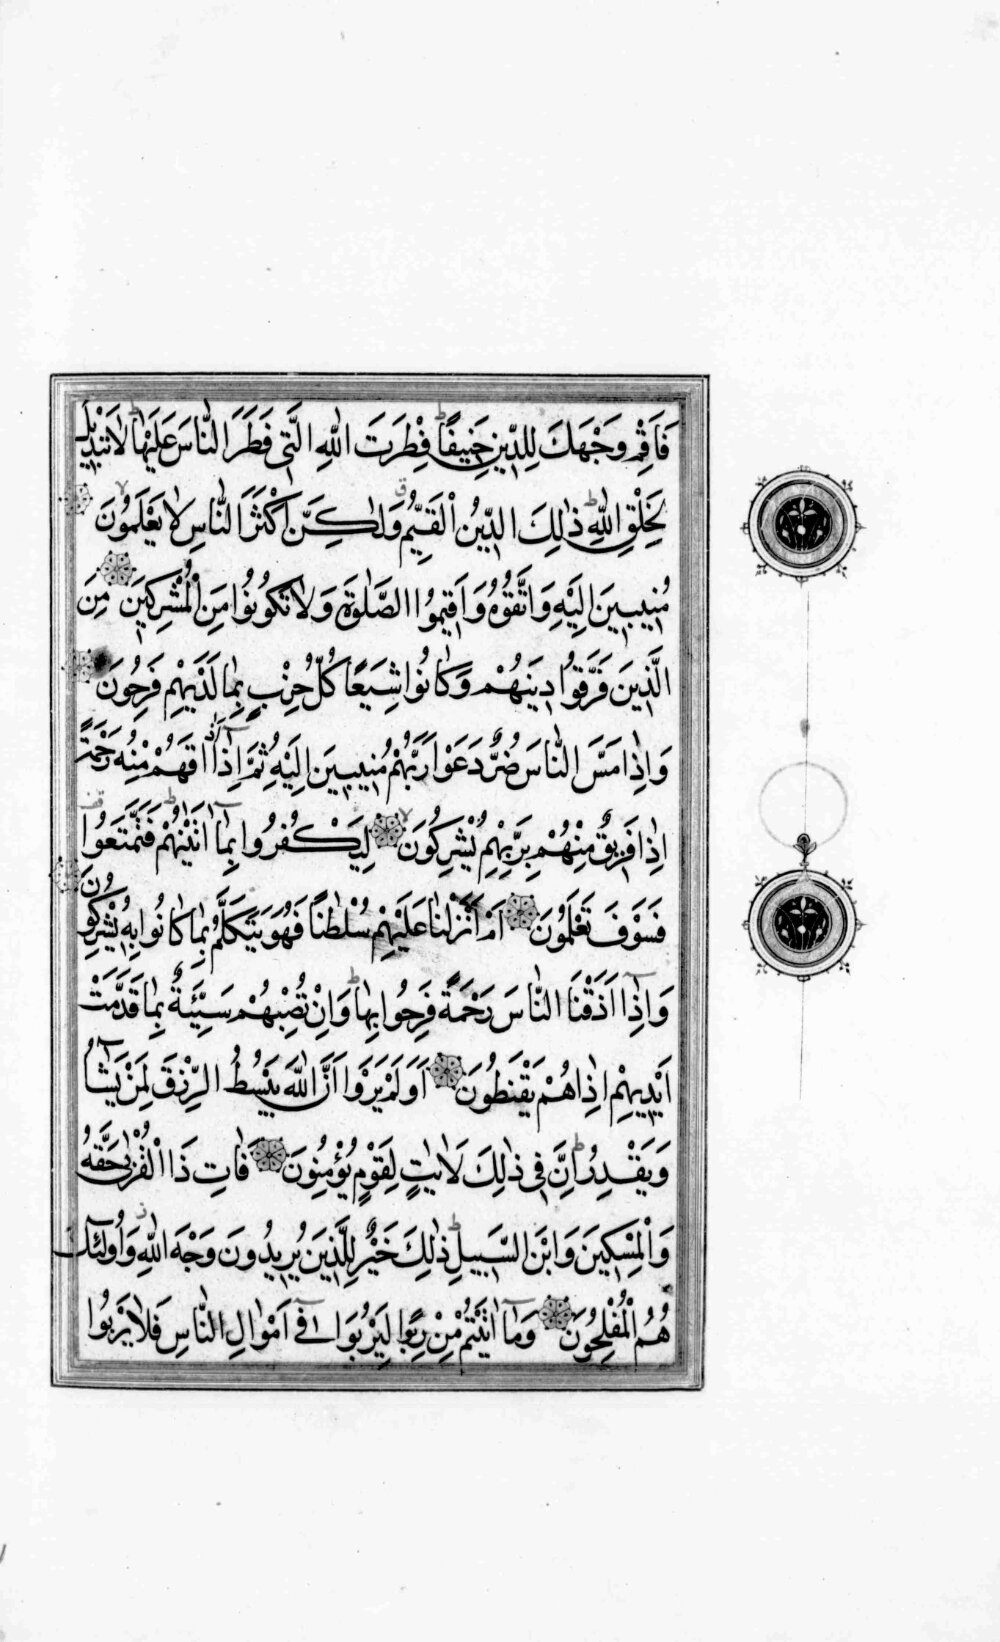 فَاَقِمْ وَجْهَكَ لِلدّٖينِ حَنٖيفًاؕ فِطْرَتَ اللّٰهِ الَّتٖى فَطَرَ النَّاسَ عَلَيْهَاؕ لَا تَبْدٖيلَ
لِخَلْقِ اللّٰهِؕ ذٰلِكَ الدّٖينُ الْقَيِّمُۗ وَلٰكِنَّ اَكْثَرَ النَّاسِ لَا يَعْلَمُونَۙ
مُنٖيبٖينَ اِلَيْهِ وَاتَّقُوهُ وَاَقٖيمُوا الصَّلٰوةَ وَلَا تَكُونُوا مِنَ الْمُشْرِكٖينَ مِنَ
الَّذٖينَ فَرَّقُوا دٖينَهُمْ وَكَانُوا شِيَعًا كُلُّ حِزْبٍ بِمَا لَدَيْهِمْ فَرِحُونَ
وَاِذَا مَسَّ النَّاسَ ضُرٌّ دَعَوْا رَبَّهُمْ مُنٖيبٖينَ اِلَيْهِ ثُمَّ اِذَٓا اَذَاقَهُمْ مِنْهُ رَحْمَةً
اِذَا فَرٖيقٌ مِنْهُمْ بِرَبِّهِمْ يُشْرِكُونَۙ لِيَكْفُرُوا بِمَٓا اٰتَيْنٰهُمْؕ فَتَمَتَّعُوا
فَسَوْفَ تَعْلَمُونَ اَمْ اَنْزَلْنَا عَلَيْهِمْ سُلْطٰنًا فَهُوَ يَتَكَلَّمُ بِمَا كَانُوا بِهٖ يُشْرِكُونَ
وَاِذَٓا اَذَقْنَا النَّاسَ رَحْمَةً فَرِحُوا بِهَاؕ وَاِنْ تُصِبْهُمْ سَيِّئَةٌ بِمَا قَدَّمَتْ
اَيْدٖيهِمْ اِذَا هُمْ يَقْنَطُونَ اَوَلَمْ يَرَوْا اَنَّ اللّٰهَ يَبْسُطُ الرِّزْقَ لِمَنْ يَشَٓاءُ
وَيَقْدِرُؕ اِنَّ فٖى ذٰلِكَ لَاٰيٰتٍ لِقَوْمٍ يُؤْمِنُونَ فَاٰتِ ذَا الْقُرْبٰى حَقَّهُ
وَالْمِسْكٖينَ وَابْنَ السَّبٖيلِؕ ذٰلِكَ خَيْرٌ لِلَّذٖينَ يُرٖيدُونَ وَجْهَ اللّٰهِ وَاُولٰٓئِكَ
هُمُ الْمُفْلِحُونَ وَمَٓا اٰتَيْتُمْ مِنْ رِبًا لِيَرْبُوَا فٖٓى اَمْوَالِ النَّاسِ فَلَا يَرْبُوا